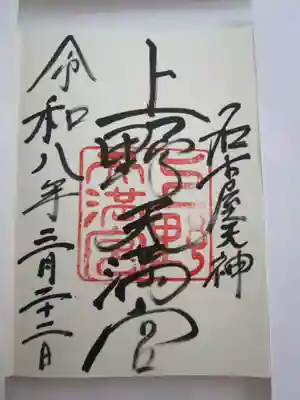 名古屋天神
上野天満宮
上野天満宮
令和八年三月二十二日